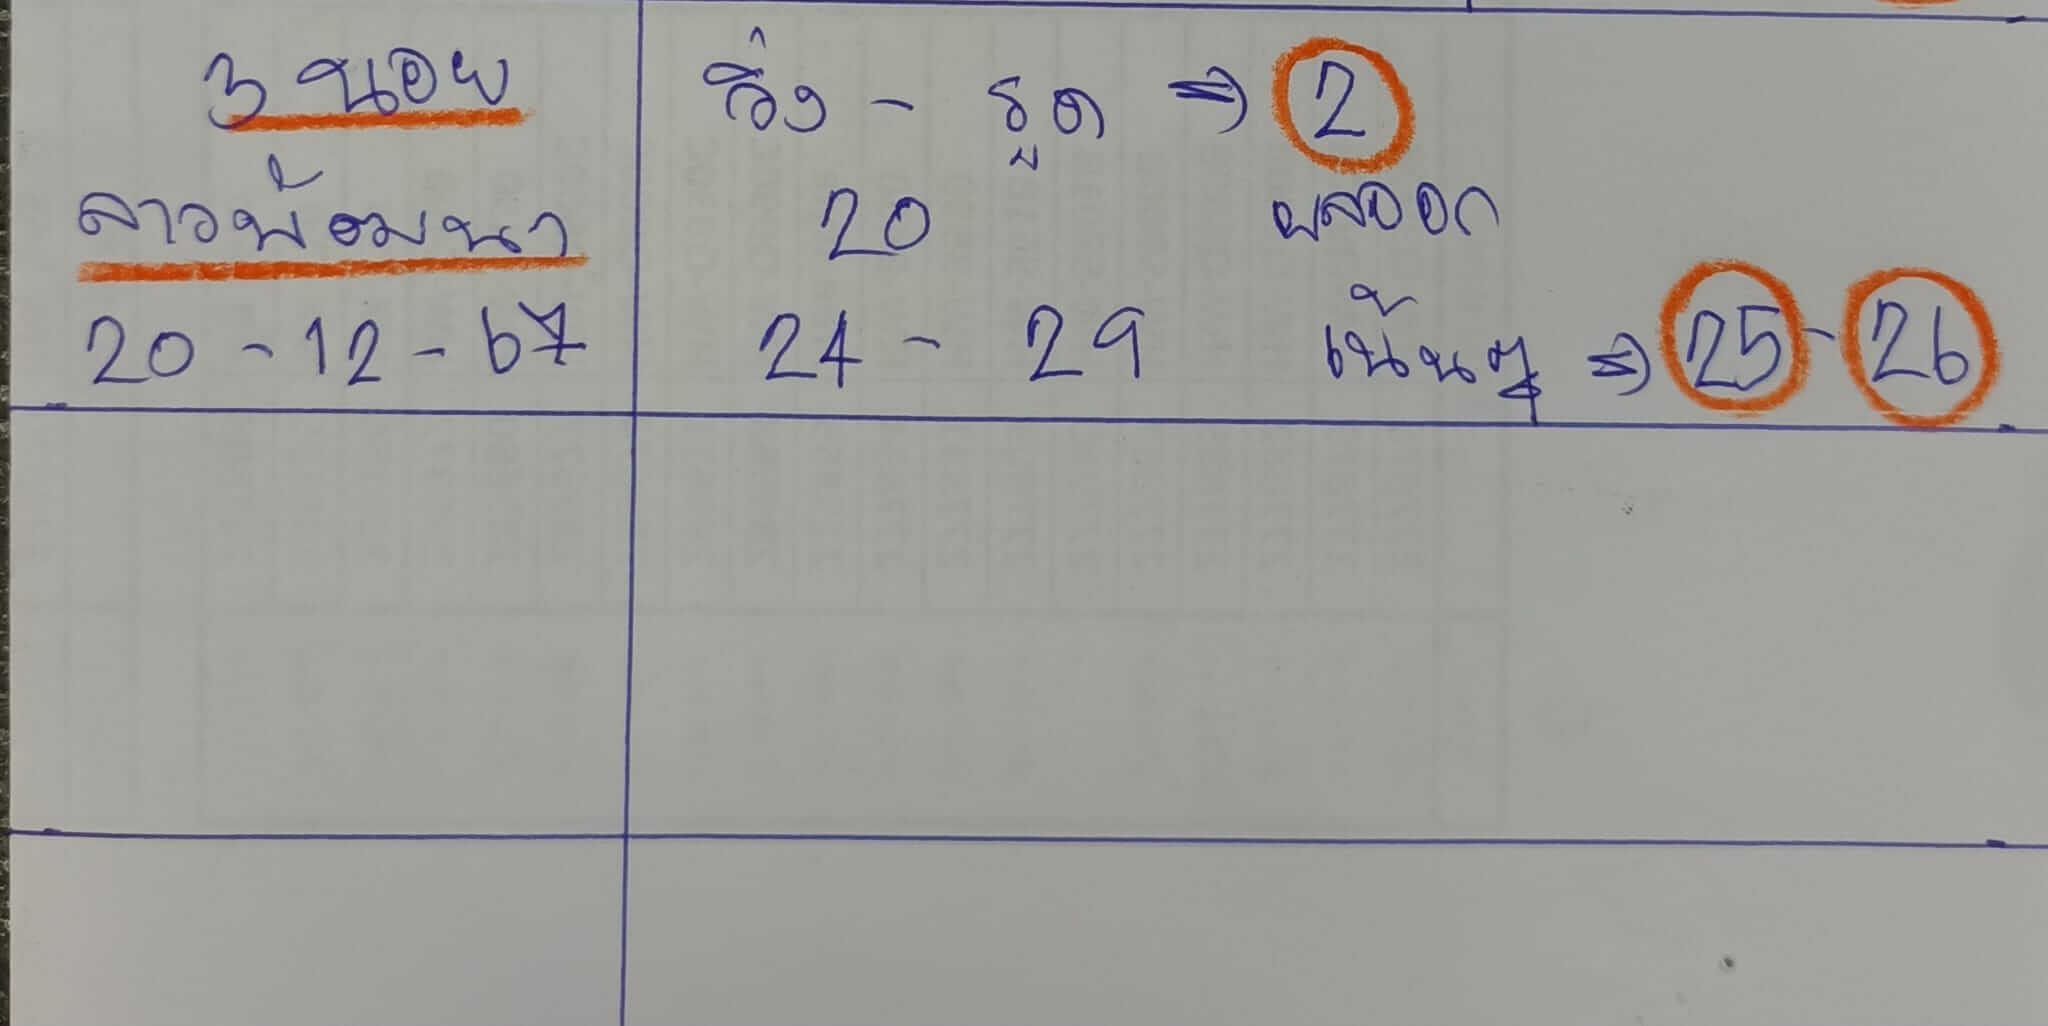 3 นอย
วิ่ง - รูด ⇒ 2
ลาวพัฒนา
20
ผลออก
20 - 12 - 67
24 - 29
เน้นๆ ⇒ 25 - 26